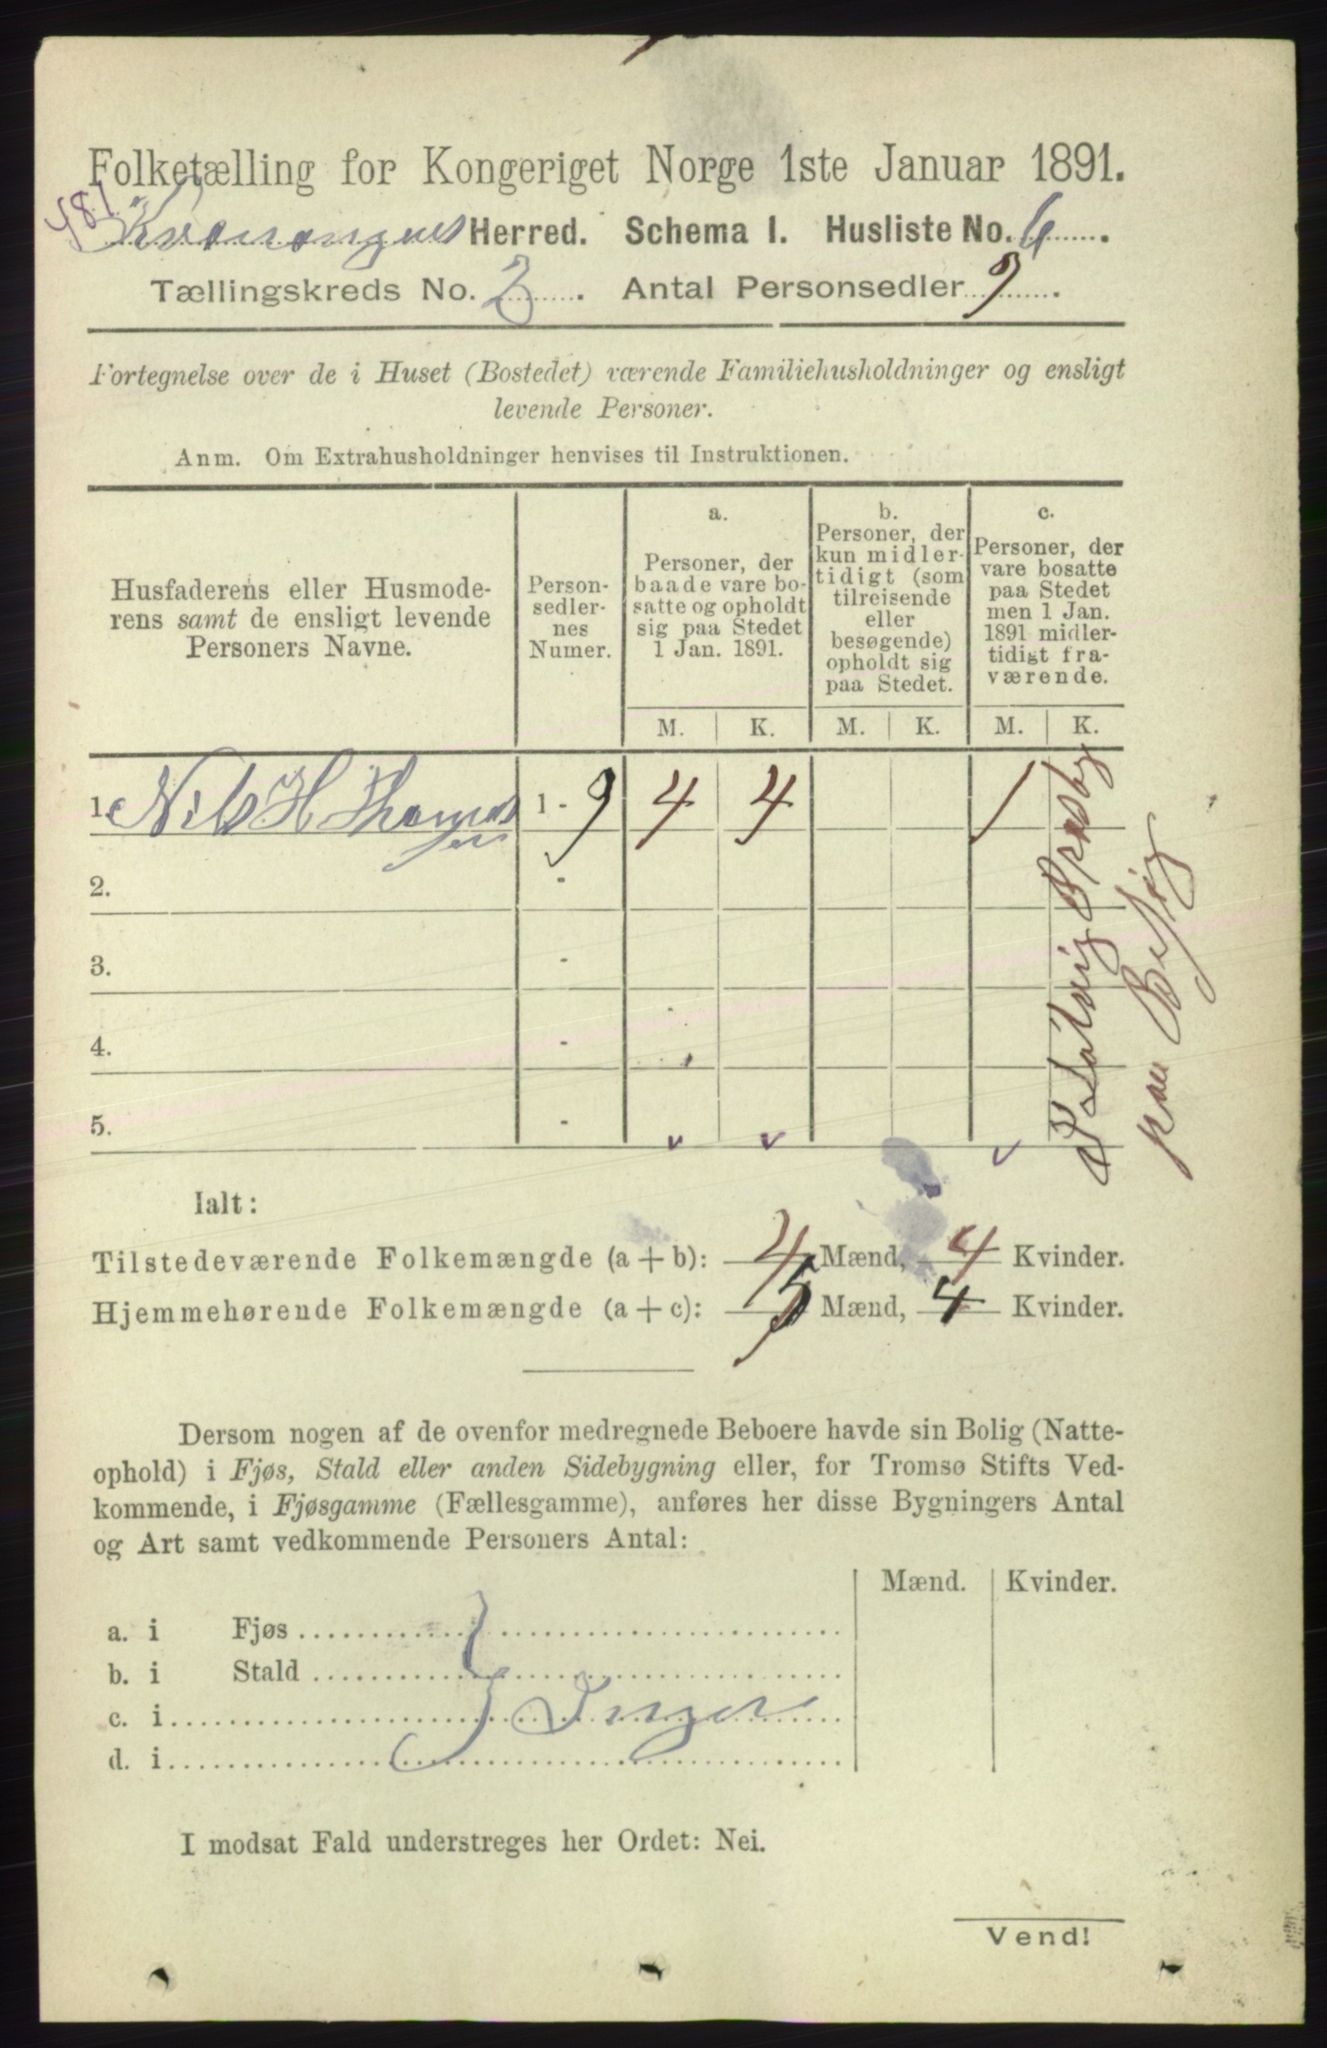 Folketælling for Kongeriget Norge 1ste Januar 1891.
481
Kvænangens Herred. Schema I. Husliste No. 6.
Tællingskreds No. 2. Antal Personsedler 9.
Fortegnelse over de i Huset (Bostedet) værende Familiehusholdninger og ensligt
levende Personer.
Anm. Om Extrahusholdninger henvises til Instruktionen.
Husfaderens eller Husmode-
rens samt de ensligt levende
Personers Navne.
Person-
sedler-
nes
Numer.
a.
Personer, der
baade vare bo-
satte og opholdt
sig paa Stedet
1 Jan. 1891.
b.
Personer, der
kun midler-
tidigt (som
tilreisende
eller
besøgende)
opholdt sig
paa Stedet.
c.
Personer, der
vare bosatte
paa Stedet
men 1 Jan.
1891 midler-
tidigt fra-
værende.
M. K. M. K. M. K.
1. Nils H Thomas 1 - 9 4 4 1
sen
2. -
3. -
4. -
5. -
paa Besøg
Ialt:
Tilstedeværende Folkemængde (a + b): 4 Mænd, 4 Kvinder.
Hjemmehørende Folkemængde (a + c): 5 Mænd, 4 Kvinder.
Dersom nogen af de ovenfor medregnede Beboere havde sin Bolig (Natte-
ophold) i Fjøs, Stald eller anden Sidebygning eller, for Tromsø Stifts Ved-
kommende, i Fjøsgamme (Fællesgamme), anføres her disse Bygningers Antal
og Art samt vedkommende Personers Antal:
Mænd. Kvinder.
a. i Fjøs
b. i Stald
c. i Ingen
d. i
I modsat Fald understreges her Ordet: Nei.
Vend!